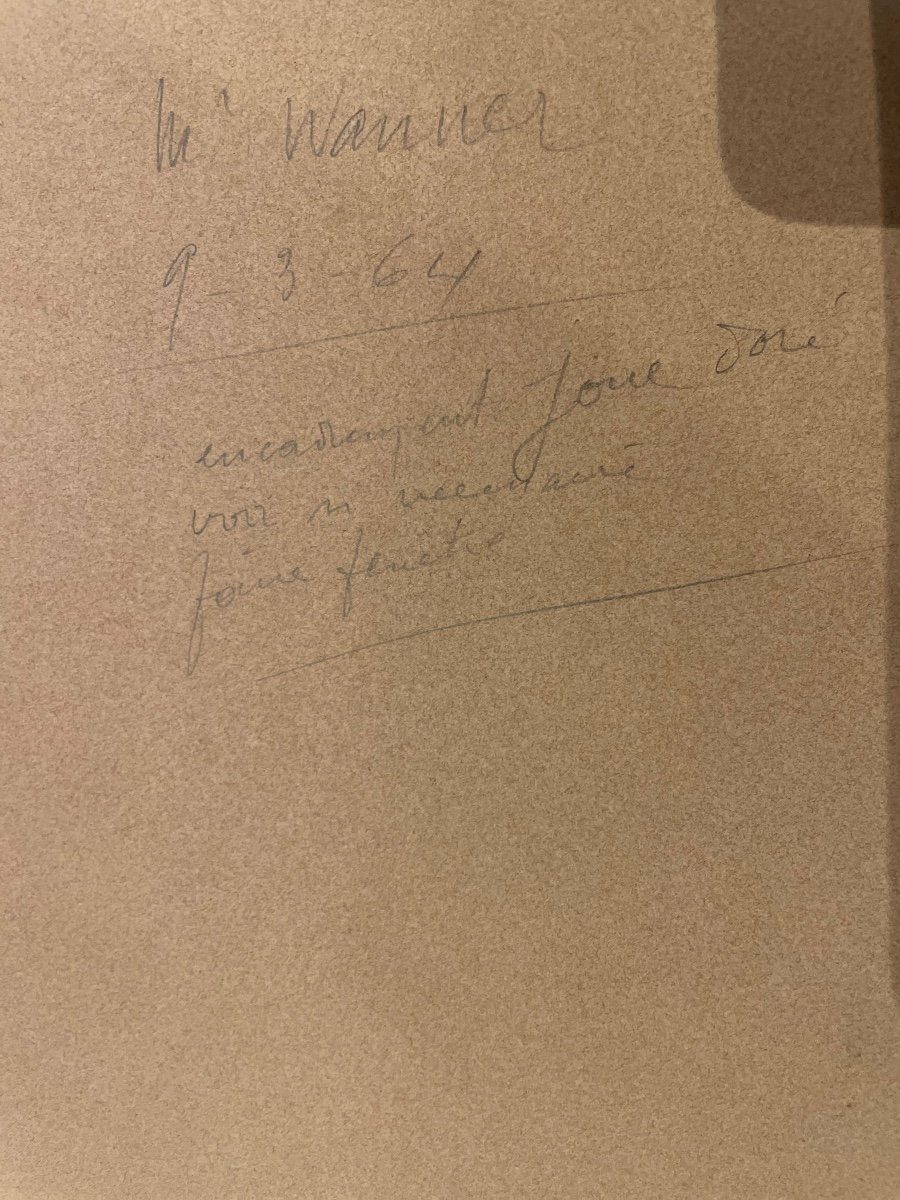 Mr Wanner
9-3-64
encadrement doré
voir si nécessaire
faire fenêtre